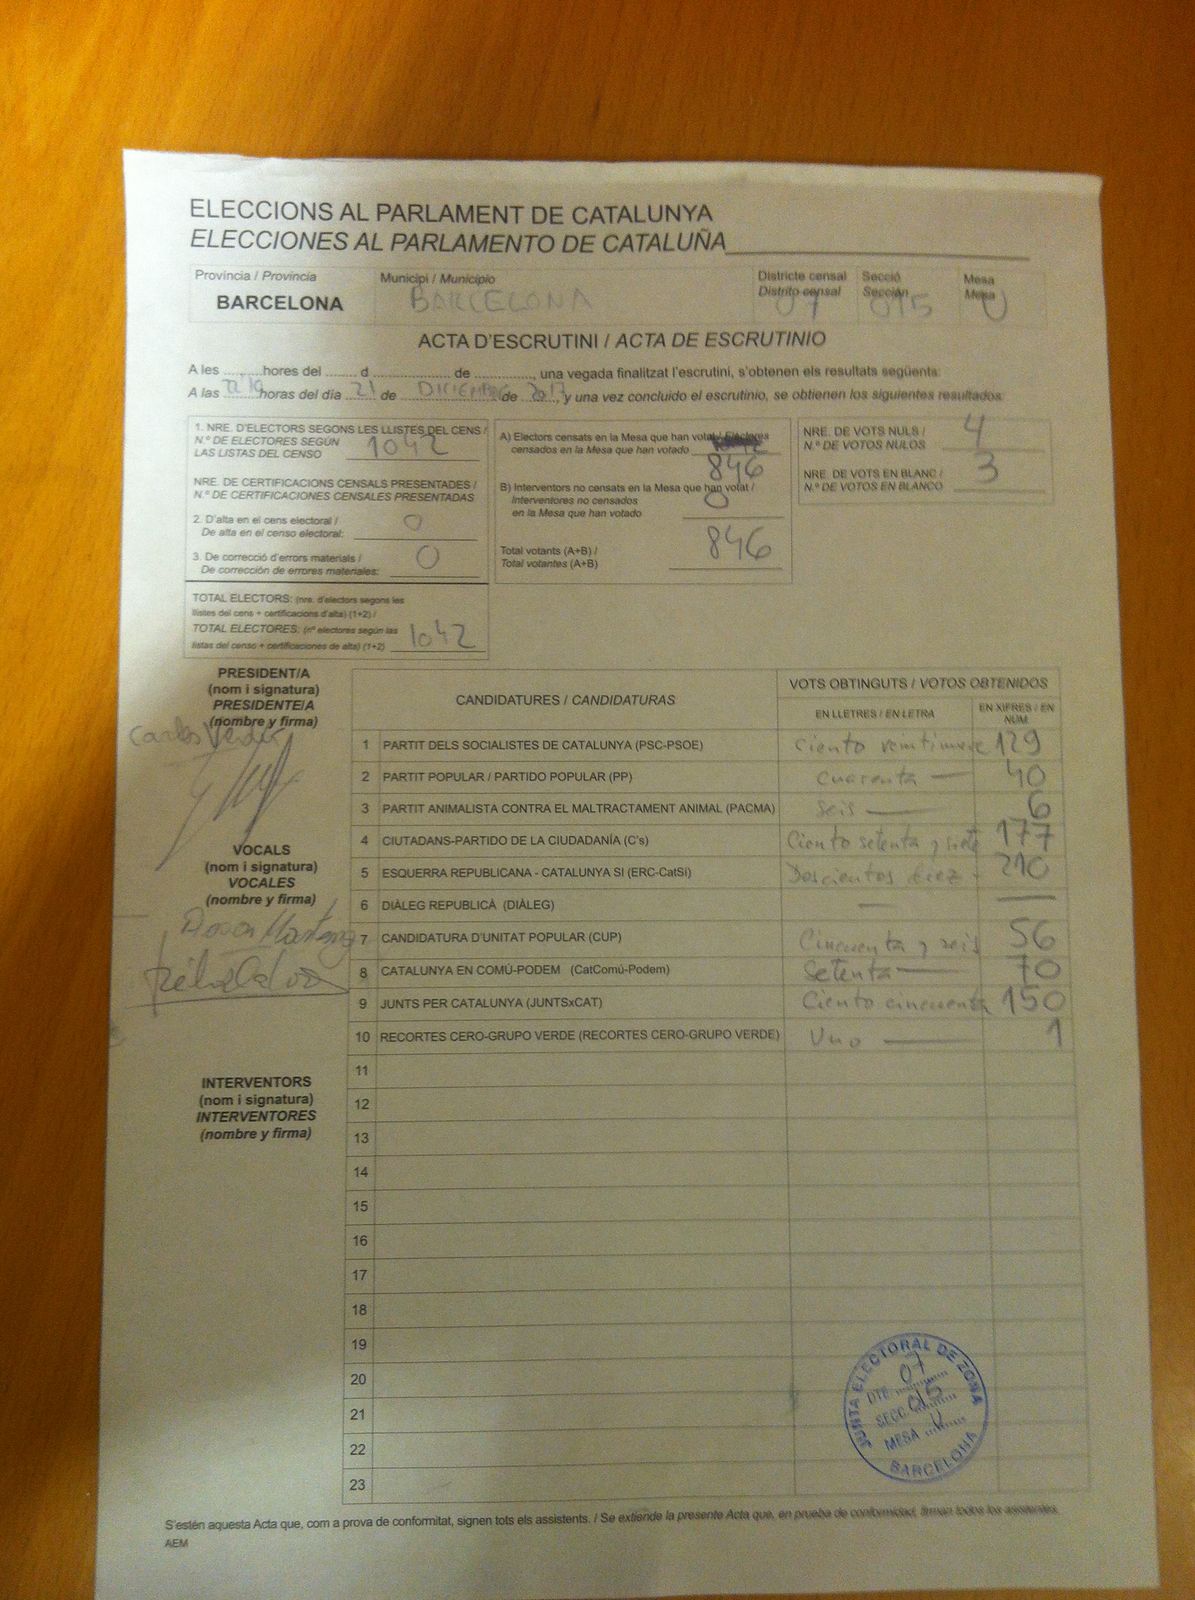 ELECCIONS AL PARLAMENT DE CATALUNYA
ELECCIONES AL PARLAMENTO DE CATALUÑA
Província / Provincia
BARCELONA
Municipi / Municipio
BARCELONA
Districte censal
Distrito censal
07
Secció
Sección
015
Mesa
Mesa
U
ACTA D'ESCRUTINI / ACTA DE ESCRUTINIO
A les ........ hores del ........ d .................... de ............, una vegada finalitzat l'escrutini, s'obtenen els resultats següents:
A las 22'10 horas del día 21 de DICIEMBRE de 2017, y una vez concluido el escrutinio, se obtienen los siguientes resultados:
1. NRE. D'ELECTORS SEGONS LES LLISTES DEL CENS /
N.º DE ELECTORES SEGÚN
LAS LISTAS DEL CENSO 1042
NRE. DE CERTIFICACIONS CENSALS PRESENTADES /
N.º DE CERTIFICACIONES CENSALES PRESENTADAS
2. D'alta en el cens electoral /
De alta en el censo electoral: 0
3. De correcció d'errors materials /
De corrección de errores materiales: 0
TOTAL ELECTORS: (nre. d'electors segons les
llistes del cens + certificacions d'alta) (1+2) /
TOTAL ELECTORES: (nº electores según las
listas del censo + certificaciones de alta) (1+2) 1042
A) Electors censats en la Mesa que han votat / Electores
censados en la Mesa que han votado
846
B) Interventors no censats en la Mesa que han votat /
Interventores no censados
en la Mesa que han votado 0
Total votants (A+B) /
Total votantes (A+B) 846
NRE. DE VOTS NULS /
N.º DE VOTOS NULOS 4
NRE. DE VOTS EN BLANC /
N.º DE VOTOS EN BLANCO 3
PRESIDENT/A
(nom i signatura)
PRESIDENTE/A
(nombre y firma)
Carlos
VOCALS
(nom i signatura)
VOCALES
(nombre y firma)
INTERVENTORS
(nom i signatura)
INTERVENTORES
(nombre y firma)
CANDIDATURES / CANDIDATURAS
VOTS OBTINGUTS / VOTOS OBTENIDOS
EN LLETRES / EN LETRA
EN XIFRES / EN NUM.
1 PARTIT DELS SOCIALISTES DE CATALUNYA (PSC-PSOE) Ciento veintinueve 129
2 PARTIT POPULAR / PARTIDO POPULAR (PP) Cuarenta — 40
3 PARTIT ANIMALISTA CONTRA EL MALTRACTAMENT ANIMAL (PACMA) Seis — 6
4 CIUTADANS-PARTIDO DE LA CIUDADANÍA (C's) Ciento setenta y siete 177
5 ESQUERRA REPUBLICANA - CATALUNYA SI (ERC-CatSí) Doscientos diez - 210
6 DIÀLEG REPUBLICÀ (DIÀLEG) — —
7 CANDIDATURA D'UNITAT POPULAR (CUP) Cincuenta y seis 56
8 CATALUNYA EN COMÚ-PODEM (CatComú-Podem) Setenta — 70
9 JUNTS PER CATALUNYA (JUNTSxCAT) Ciento cincuenta 150
10 RECORTES CERO-GRUPO VERDE (RECORTES CERO-GRUPO VERDE) Uno — 1
11
12
13
14
15
16
17
18
19
20
21
22
23
JUNTA ELECTORAL DE ZONA
DTE. 07
SECC. 015
MESA U
BARCELONA
S'estén aquesta Acta que, com a prova de conformitat, signen tots els assistents. / Se extiende la presente Acta que, en prueba de conformidad, firman todos los asistentes.
AEM